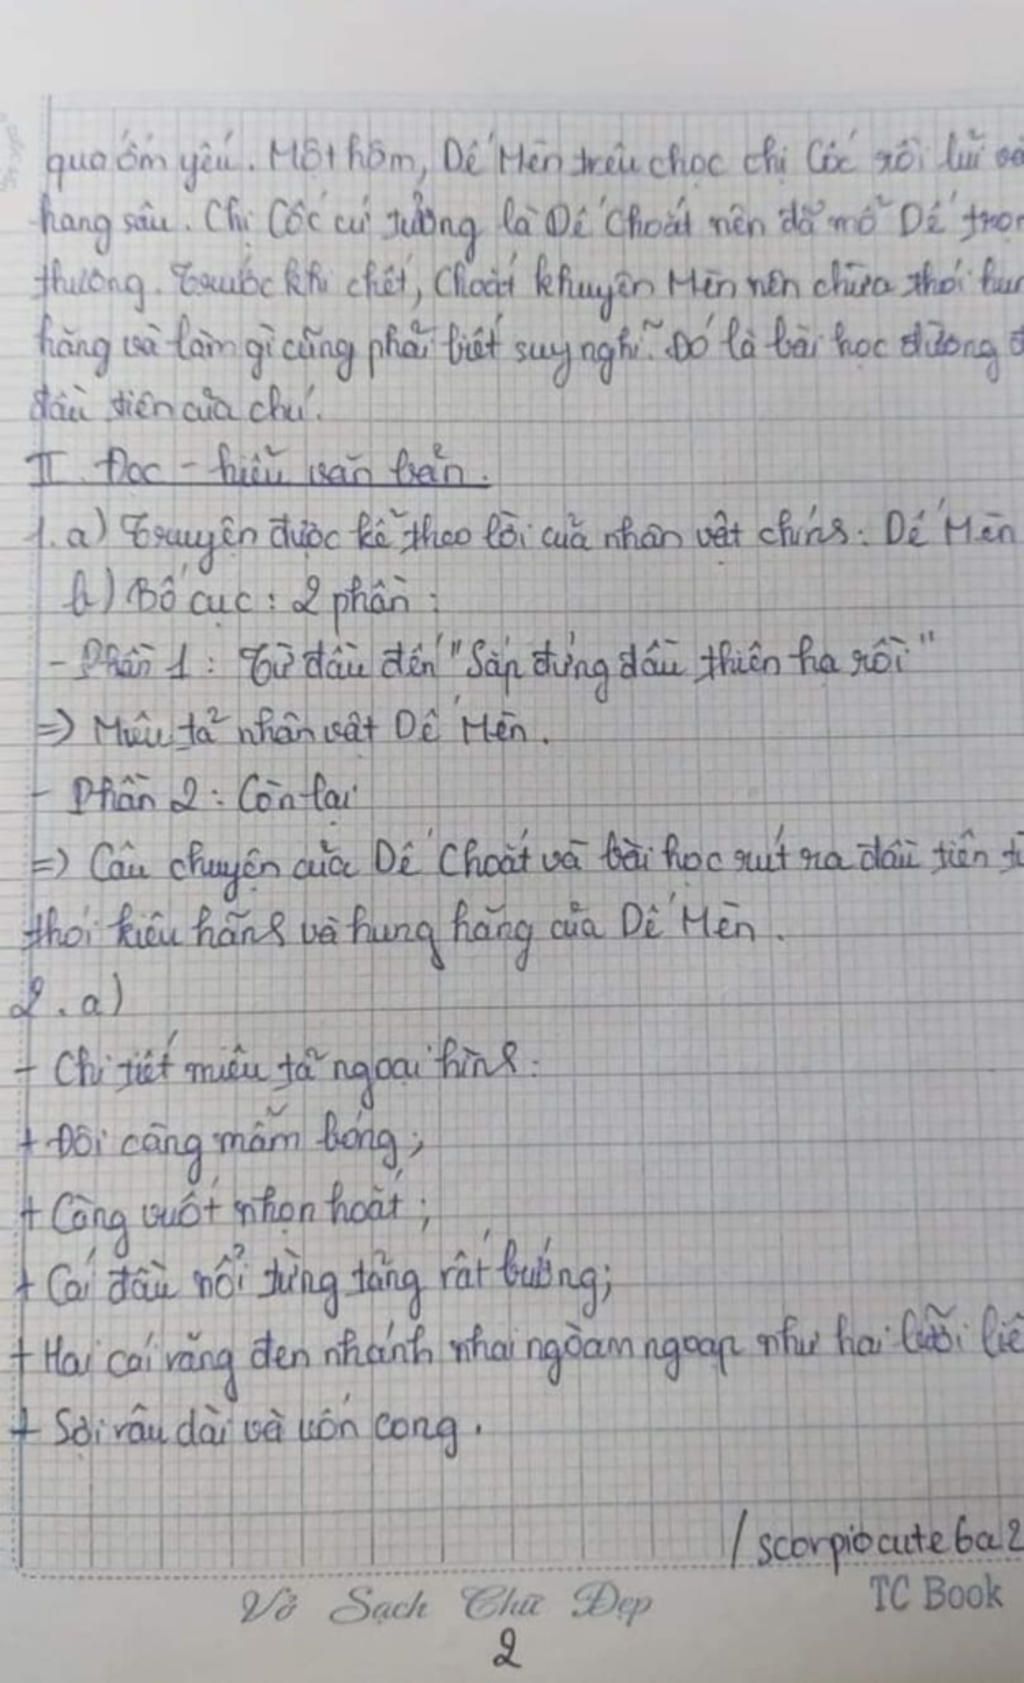 quá ốm yếu. Một hôm, Dế Mèn trêu chọc chị Cốc rồi lủi
hang sâu. Chị Cốc cứ tưởng là Dế Choắt nên đã mổ Dế
thương. Trước khi chết, Choắt khuyên Mèn nên chừa thói
hăng và làm gì cũng phải biết suy nghĩ. Đó là bài học đường
đầu tiên của chú.
II. Đọc - hiểu văn bản.
1. a) Truyện được kể theo lời của nhân vật chính: Dế Mèn
b) Bố cục: 2 phần:
- Phần 1: Từ đầu đến "Sắp đứng đầu thiên hạ rồi"
=> Miêu tả nhân vật Dế Mèn.
- Phần 2: Còn lại
=> Câu chuyện của Dế Choắt và bài học rút ra đầu tiên
thói kiêu hãnh và hung hăng của Dế Mèn.
2. a)
- Chi tiết miêu tả ngoại hình:
+ Đôi càng mẫm bóng;
+ Càng vuốt nhọn hoắt;
+ Cái đầu nổi từng tảng rất bướng;
+ Hai cái răng đen nhánh nhai ngoàm ngoạp như hai lưỡi
+ Sợi râu dài và uốn cong.
/scorpiocute6a2
Vở Sạch Chữ Đẹp
TC Book
2